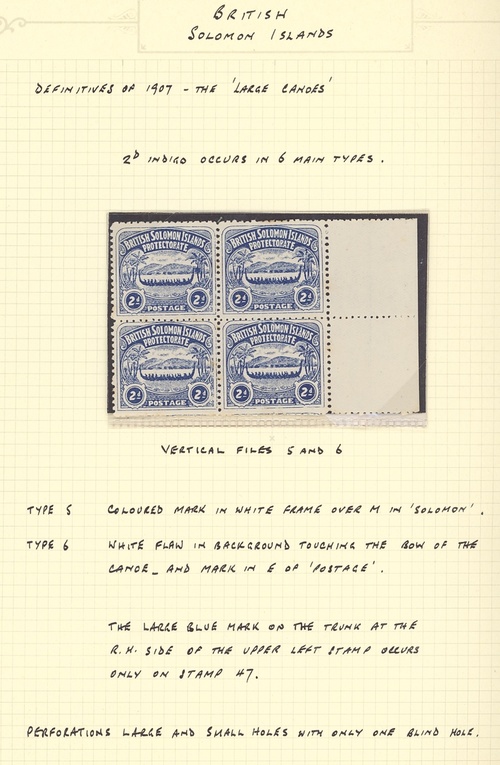 BRITISH
SOLOMON ISLANDS
DEFINITIVES OF 1907 - THE 'LARGE CANOES'
2D INDIGO OCCURS IN 6 MAIN TYPES.
BRITISH SOLOMON ISLANDS BRITISH SOLOMON ISLANDS
PROTECTORATE PROTECTORATE
2d 2d 2d 2d
POSTAGE POSTAGE
BRITISH SOLOMON ISLANDS BRITISH SOLOMON ISLANDS
PROTECTORATE PROTECTORATE
2d 2d 2d 2d
POSTAGE POSTAGE
VERTICAL FILES 5 AND 6
TYPE 5 COLOURED MARK IN WHITE FRAME OVER M IN 'SOLOMON'.
TYPE 6 WHITE FLAW IN BACKGROUND TOUCHING THE BOW OF THE
CANOE_ AND MARK IN E OF 'POSTAGE'.
THE LARGE BLUE MARK ON THE TRUNK AT THE
R.H. SIDE OF THE UPPER LEFT STAMP OCCURS
ONLY ON STAMP 47.
PERFORATIONS LARGE AND SMALL HOLES WITH ONLY ONE BLIND HOLE.